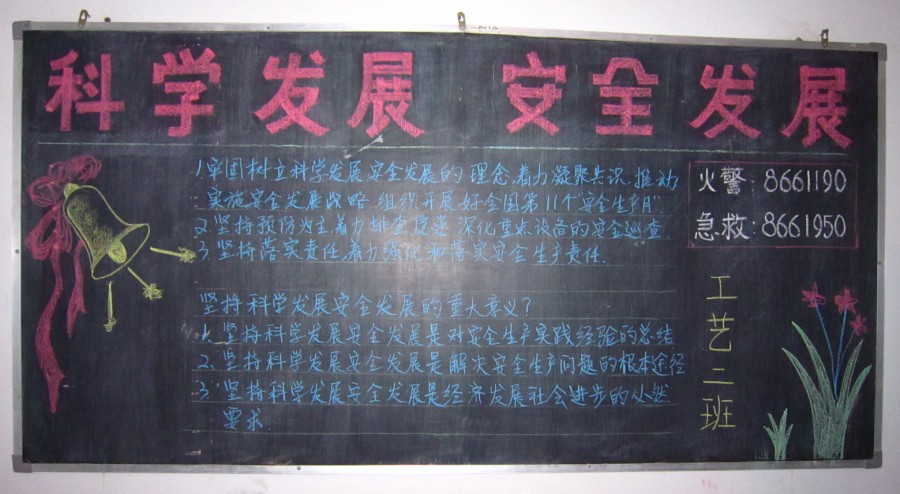 科学发展 安全发展
1.牢固树立科学发展安全发展的理念,着力凝聚共识,推动
实施安全发展战略 组织开展好全国第11个安全生产月"
2.坚持预防为主,着力排查 深化重点设备的安全巡查
3.坚持落实责任,着力强化和落实安全生产责任.
坚持科学发展安全发展的重大意义?
1.坚持科学发展安全发展是对安全生产实践经验的总结
2.坚持科学发展安全发展是解决安全生产问题的根本途径
3.坚持科学发展安全发展是经济发展社会进步的必然
要求.
火警:8661190
急救:8661950
工艺二班